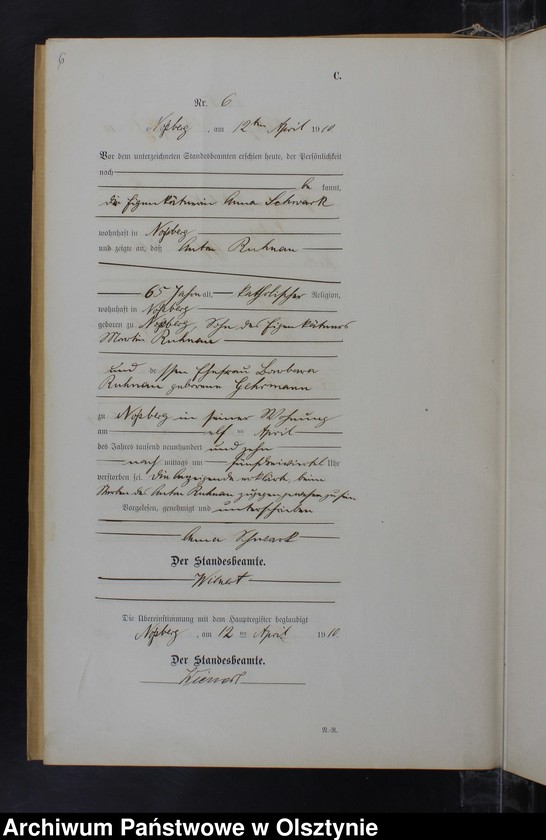 6
C.
Nr. 6
Noßberg, am 12ten April 1910
Vor dem unterzeichneten Standesbeamten erschien heute, der Persönlichkeit
nach
be kannt,
die Eigenkätnerin Anna Schwark
wohnhaft in Noßberg
und zeigte an, daß Anton Ruhnau
65 Jahre alt, katholischer Religion,
wohnhaft in Noßberg
geboren zu Noßberg, Sohn des Eigenkätners
Martin Ruhnau
und dessen Ehefrau Barbara
Ruhnau geborene Gehrmann
zu Noßberg in seiner Wohnung
am elften April
des Jahres tausend neunhundert und zehn
nach mittags um fünfdreiviertel Uhr
verstorben sei. Die Anzeigende erklärte, beim
Sterben des Anton Ruhnau zugegen gewesen zu sein
Vorgelesen, genehmigt und unterschrieben
Anna Schwark
Der Standesbeamte.
Wienert
Die Übereinstimmung mit dem Hauptregister beglaubigt
Noßberg, am 12ten April 1910.
Der Standesbeamte.
Wienert
N.-R.
Archiwum Państwowe w Olsztynie